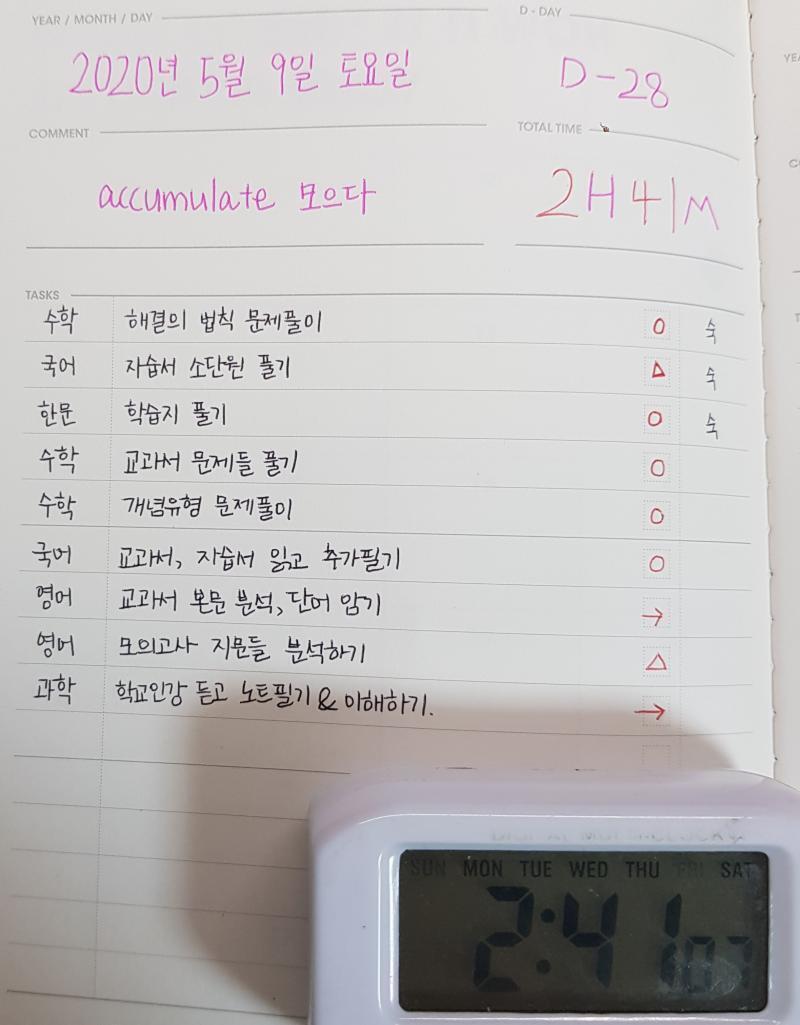 YEAR / MONTH / DAY
D - DAY
2020년 5월 9일 토요일
D-28
COMMENT
TOTAL TIME
accumulate 모으다
2H 41M
TASKS
수학 해결의 법칙 문제풀이 O 숙
국어 자습서 소단원 풀기 △ 숙
한문 학습지 풀기 O 숙
수학 교과서 문제들 풀기 O
수학 개념유형 문제풀이 O
국어 교과서, 자습서 읽고 추가필기 O
영어 교과서 본문 분석, 단어 암기 →
영어 모의고사 지문들 분석하기 △
과학 학교인강 듣고 노트필기 & 이해하기. →
SUN MON TUE WED THU FRI SAT
2:41 07